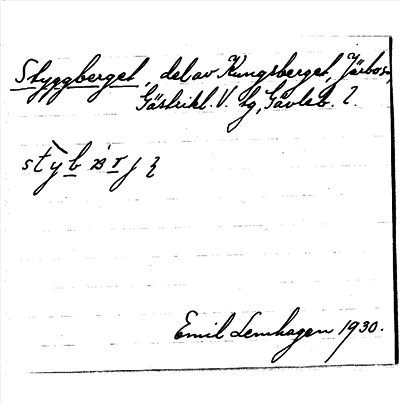 Styggberget, del av Kungsberget, Järbo s.,
Gästrikl. V. tg, Gävleb. l.
Emil Lenhagen 1930.